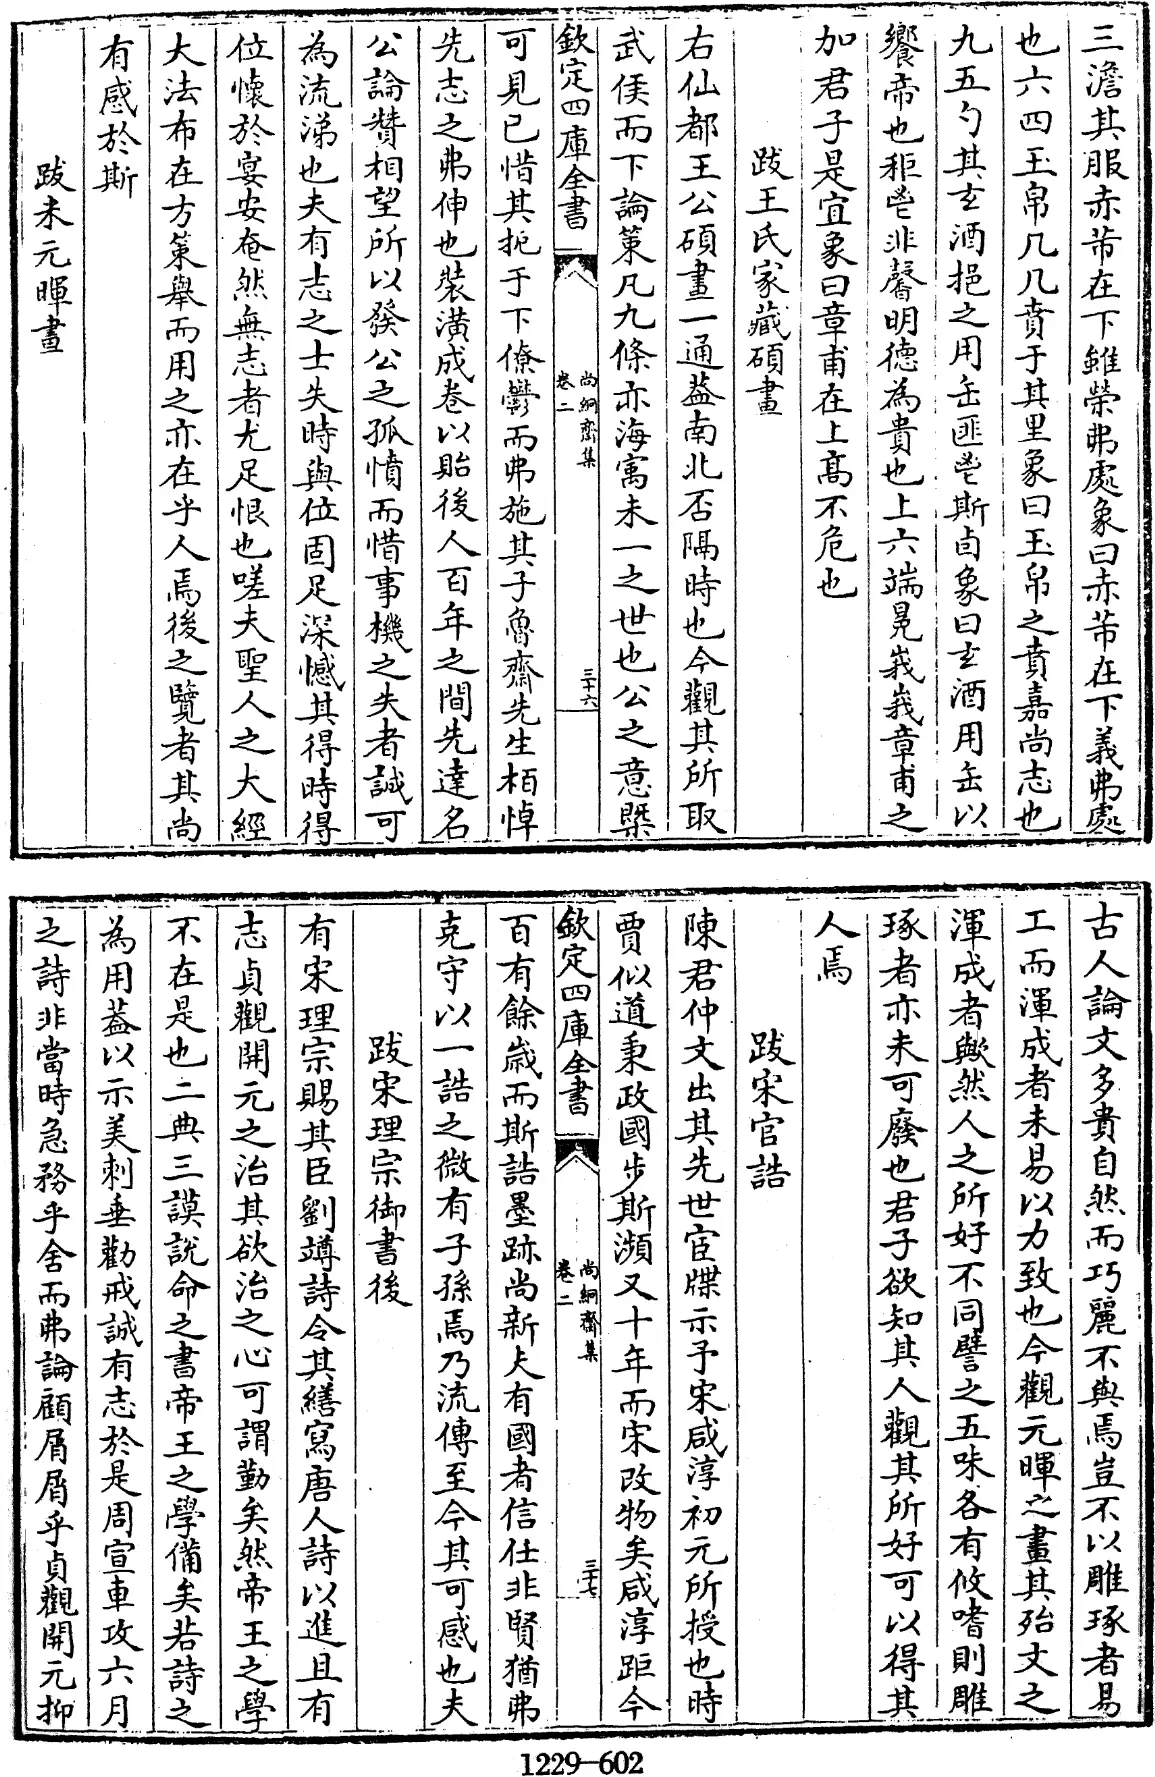 三澹其服赤芾在下雖榮弗處象曰赤芾在下義弗處
也六四玉帛几几賁于其里象曰玉帛之賁嘉尚志也
九五勺其玄酒挹之用缶匪鬯斯卣象曰玄酒用缶以
饗帝也秬鬯非馨明德為貴也上六端冕峩峩章甫之
加君子是宜象曰章甫在上髙不危也
跋王氏家藏碩畫
右仙都王公碩畫一通葢南北否隔時也今觀其所取
武侯而下論策凡九條亦海寓未一之世也公之意槩
欽定四庫全書
尚絅齋集
卷二
三十六
可見已惜其扼于下僚鬱而弗施其子魯齋先生栢悼
先志之弗伸也裝潢成卷以貽後人百年之間先達名
公論贊相望所以發公之孤憤而惜事機之失者誠可
為流涕也夫有志之士失時與位固足深憾其得時得
位懷於宴安奄然無志者尤足恨也嗟夫聖人之大經
大法布在方策舉而用之亦在乎人焉後之覽者其尚
有感於斯
跋米元暉畫
古人論文多貴自然而巧麗不與焉豈不以雕琢者易
工而渾成者未易以力致也今觀元暉之畫其殆文之
渾成者歟然人之所好不同譬之五味各有攸嗜則雕
琢者亦未可廢也君子欲知其人觀其所好可以得其
人焉
跋宋官誥
陳君仲文出其先世宦牒示予宋咸淳初元所授也時
賈似道秉政國步斯瀕又十年而宋改物矣咸淳距今
欽定四庫全書
尚絅齋集
卷二
三十七
百有餘嵗而斯誥墨跡尚新夫有國者信仕非賢猶弗
克守以一誥之微有子孫焉乃流傳至今其可感也夫
跋宋理宗御書後
有宋理宗賜其臣劉竴詩令其繕寫唐人詩以進且有
志貞觀開元之治其欲治之心可謂勤矣然帝王之學
不在是也二典三謨説命之書帝王之學備矣若詩之
為用葢以示美刺垂勸戒誠有志於是周宣車攻六月
之詩非當時急務乎舍而弗論顧屑屑乎貞觀開元抑
1229—602